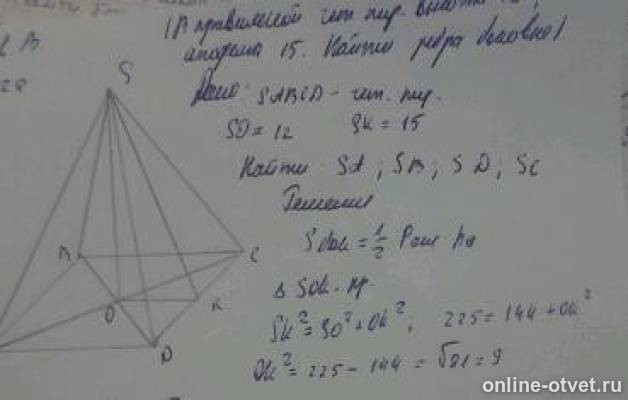 В правильной чет. пир. высота 12,
апофема 15. Найти ребра боковые
Дано: SABCD - чет. пир.
SO = 12 SK = 15
Найти SA; SB; SD; SC
Решение
S бок = 1/2 Росн ha
Δ SOK. пр.
SK² = SO² + OK²; 225 = 144 + OK²
OK² = 225 - 144 = √81 = 9
S
B
C
O
K
D
online-otvet.ru